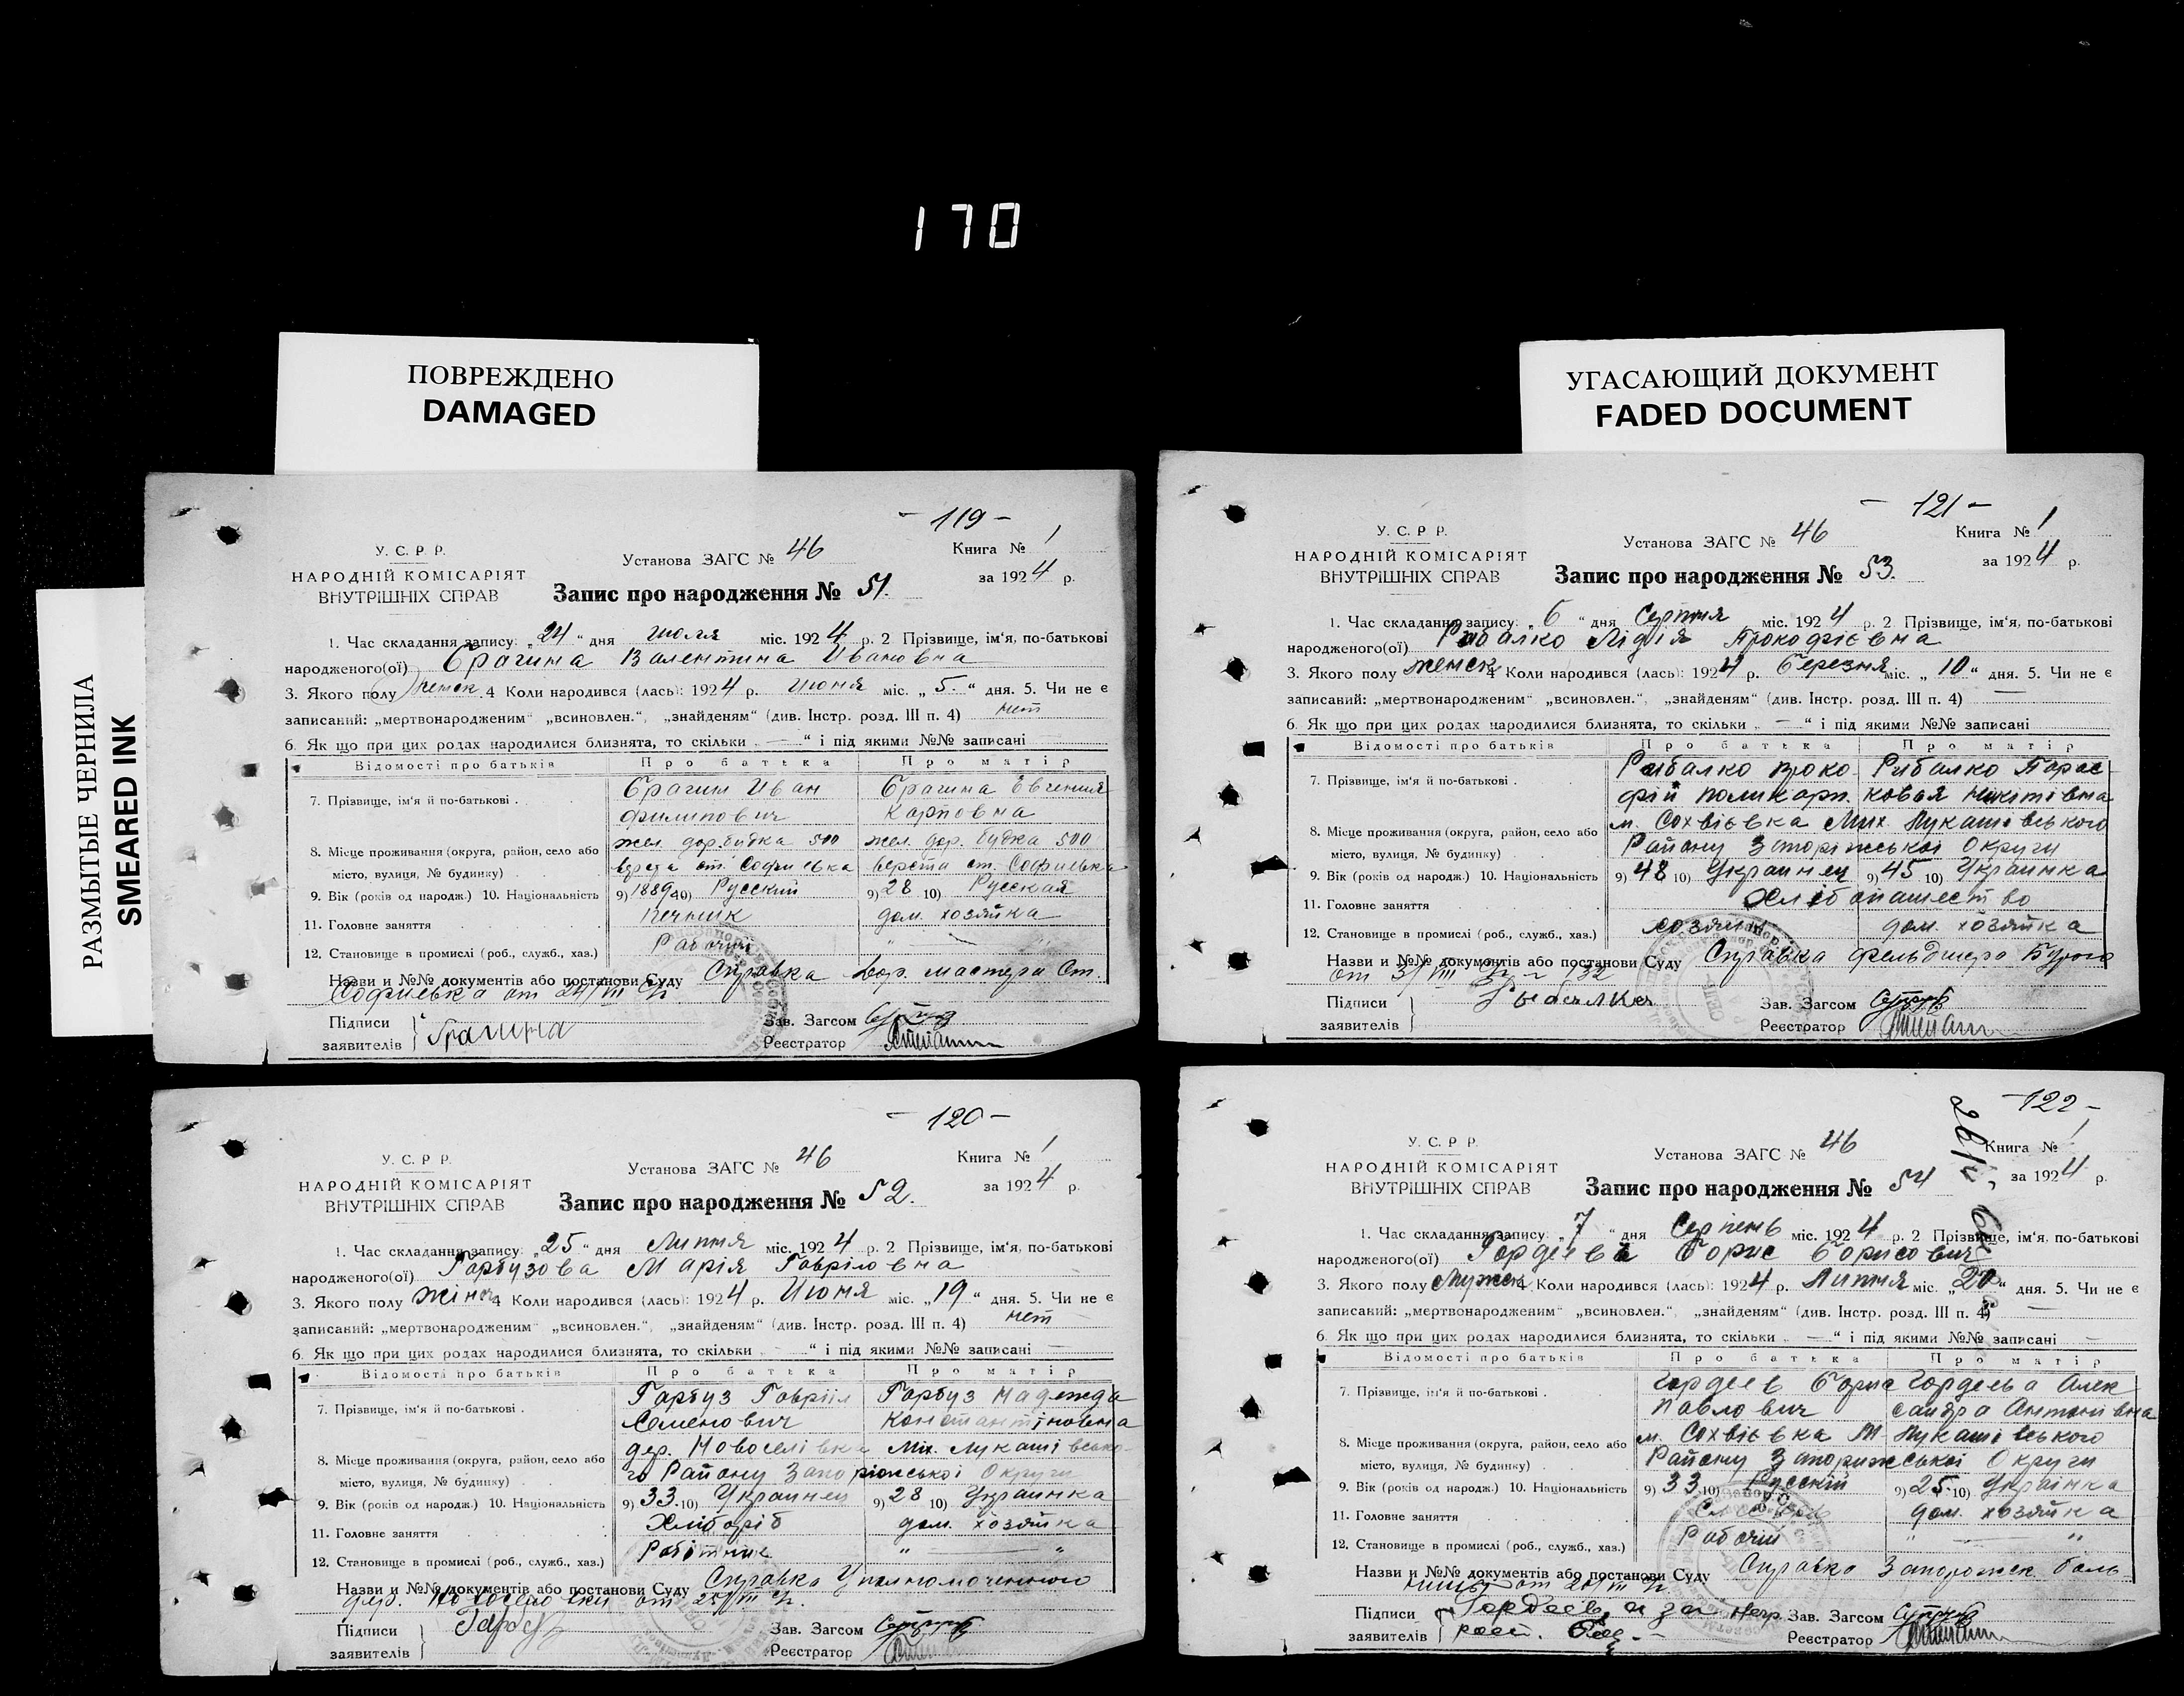 170
ПОВРЕЖДЕНО
DAMAGED
УГАСАЮЩИЙ ДОКУМЕНТ
FADED DOCUMENT
РАЗМЫТЫЕ ЧЕРНИЛА
SMEARED INK
– 119 –
У. С. Р. Р.
НАРОДНІЙ КОМІСАРІЯТ
ВНУТРІШНІХ СПРАВ
Установа ЗАГС № 46
Книга № 1
за 1924 р.
Запис про народження № 51.
1. Час складання запису: „24“ дня июля міс. 1924 р. 2 Прізвище, ім‘я, по-батькові
народженого(ої) Брагина Валентина Ивановна
3. Якого полу женск. 4 Коли народився (лась): 1924 р. Июня міс. „5.“ дня. 5. Чи не є
записаний: „мертвонародженим“ „всиновлен.“, „знайденям“ (див. Інстр. розд. III п. 4) нет
6. Як що при цих родах народилися близнята, то скільки „—“ і під якими №№ записані
Відомості про батьків Про батька Про матір
7. Прізвище, ім‘я й по-батькові . Брагин Иван Брагина Евгения
филипович Карповна
жел. дор. будка 500 жел. дор. будка 500
8. Місце проживання (округа, район, село або верста ст. Софиевка верста ст. Софиевка
місто, вулиця, № будинку)
9. Вік (років од народж.) 10. Національність 9) 1889 10) Русский 9) 28 10) Русская
11. Головне заняття печник дом. хозяйка
12. Становище в промислі (роб., служб., хаз.) Рабочий " — "
Назви и №№ документів або постанови Суду Справка Дор. мастера Ст.
Софиевка от 24/VII
Підписи
заявителів Брагина
Зав. Загсом
Реєстратор
– 120 –
У. С. Р. Р.
НАРОДНІЙ КОМІСАРІЯТ
ВНУТРІШНІХ СПРАВ
Установа ЗАГС № 46
Книга № 1
за 1924 р.
Запис про народження № 52.
1. Час складання запису: „25“ дня Липня міс. 1924 р. 2 Прізвище, ім‘я, по-батькові
народженого(ої) Гарбузова Марія Гавріловна
3. Якого полу жіноч 4 Коли народився (лась): 1924 р. Июня міс. „19“ дня. 5. Чи не є
записаний: „мертвонародженим“ „всиновлен.“, „знайденям“ (див. Інстр. розд. III п. 4) нет
6. Як що при цих родах народилися близнята, то скільки „—“ і під якими №№ записані —
Відомості про батьків Про батька Про матір
7. Прізвище, ім‘я й по-батькові . Гарбуз Гавріїл Гарбуз Надежда
Семенович Константіновна
дер. Новоселівка Мих. Лукашівсько-
8. Місце проживання (округа, район, село або го Району Запоріжської Округи
місто, вулиця, № будинку)
9. Вік (років од народж.) 10. Національність 9) 33. 10) Украинец 9) 28 10) Украинка
11. Головне заняття Хлібороб дом. хозяйка
12. Становище в промислі (роб., служб., хаз.) Робітник " — "
Назви и №№ документів або постанови Суду Справка Уполномоченного
дер. Новоселовки от 25/VII
Підписи
заявителів Гарбуз
Зав. Загсом
Реєстратор
– 121 –
У. С. Р. Р.
НАРОДНІЙ КОМІСАРІЯТ
ВНУТРІШНІХ СПРАВ
Установа ЗАГС № 46
Книга № 1
за 1924 р.
Запис про народження № 53.
1. Час складання запису: „6“ дня Серпня міс. 1924 р. 2 Прізвище, ім‘я, по-батькові
народженого(ої) Рибалко Лідія Прокофієвна
3. Якого полу женск 4 Коли народився (лась): 1924 р. Березня міс. „10“ дня. 5. Чи не є
записаний: „мертвонародженим“ „всиновлен.“, „знайденям“ (див. Інстр. розд. III п. 4) —
6. Як що при цих родах народилися близнята, то скільки „—“ і під якими №№ записані
Відомості про батьків Про батька Про матір
7. Прізвище, ім‘я й по-батькові . Рибалко Проко Рибалко Парас
фій поликарп. ковья Микитівна
м. Софіївка Мих. Лукашівського
8. Місце проживання (округа, район, село або Району Запоріжської Округи
місто, вулиця, № будинку)
9. Вік (років од народж.) 10. Національність 9) 48 10) Украинец 9) 45 10) Украинка
11. Головне заняття Хлібопашество
12. Становище в промислі (роб., служб., хаз.) хозяин дом. хозяйка
Назви и №№ документів або постанови Суду Справка фельдшера
от 3/VIII № 132
Підписи
заявителів Рыбалка
Зав. Загсом
Реєстратор
– 122 –
У. С. Р. Р.
НАРОДНІЙ КОМІСАРІЯТ
ВНУТРІШНІХ СПРАВ
Установа ЗАГС № 46
Книга № 1
за 1924 р.
Запис про народження № 54
1. Час складання запису: „7“ дня Серпень міс. 1924 р. 2 Прізвище, ім‘я, по-батькові
народженого(ої) Гордеев Борис Борисович
3. Якого полу Мужск 4 Коли народився (лась): 1924 р. Липня міс. „20“ дня. 5. Чи не є
записаний: „мертвонародженим“ „всиновлен.“, „знайденям“ (див. Інстр. розд. III п. 4)
6. Як що при цих родах народилися близнята, то скільки „—“ і під якими №№ записані
Відомості про батьків Про батька Про матір
7. Прізвище, ім‘я й по-батькові . Гордеев Борис Гордеева Алек
Павлович сандра Антонівна
м. Софіївка М Лукашівського
8. Місце проживання (округа, район, село або Району Запорижської Округи
місто, вулиця, № будинку)
9. Вік (років од народж.) 10. Національність 9) 33 10) Русскій 9) 25. 10) Украінка
11. Головне заняття дом. хозяйка
12. Становище в промислі (роб., служб., хаз.) Рабочий " — "
Назви и №№ документів або постанови Суду Справка Запорожск боль
ницы от 20/VII
Підписи
заявителів Гордеев, а за негр.
расп.
Зав. Загсом
Реєстратор